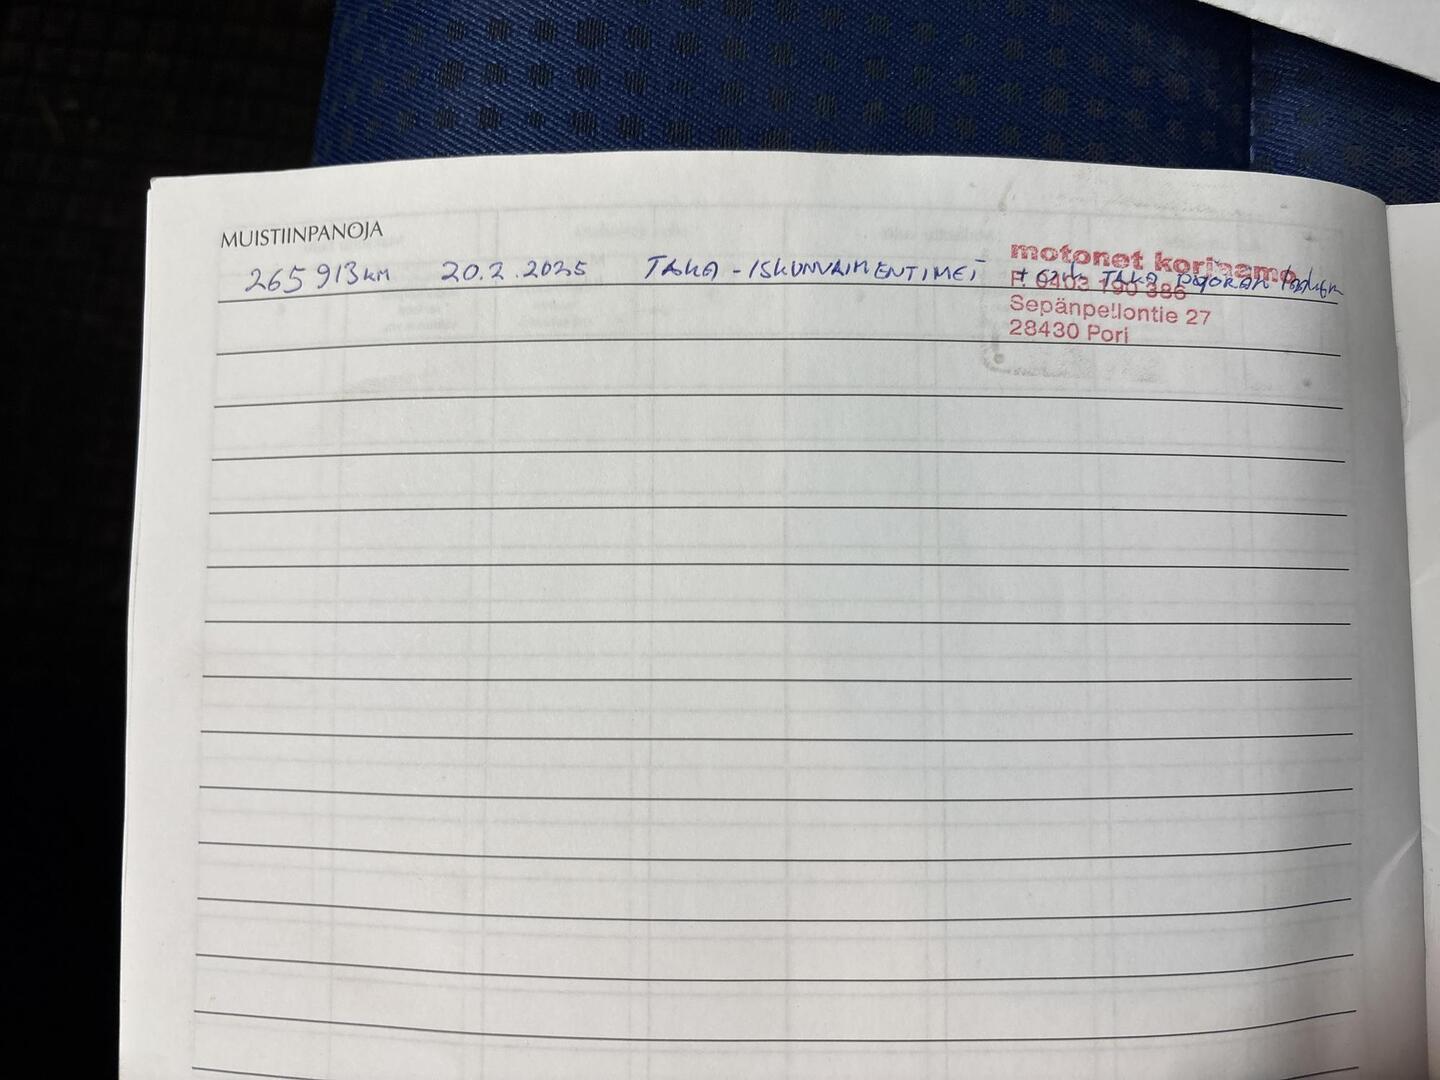 MUISTIINPANOJA
265 913 km 20.2.2025 TAKA-ISKUNVAIMENTIMET + TAKA PYÖRÄN
motonet korjaamo
P. 0403 790 386
Sepänpellontie 27
28430 Pori